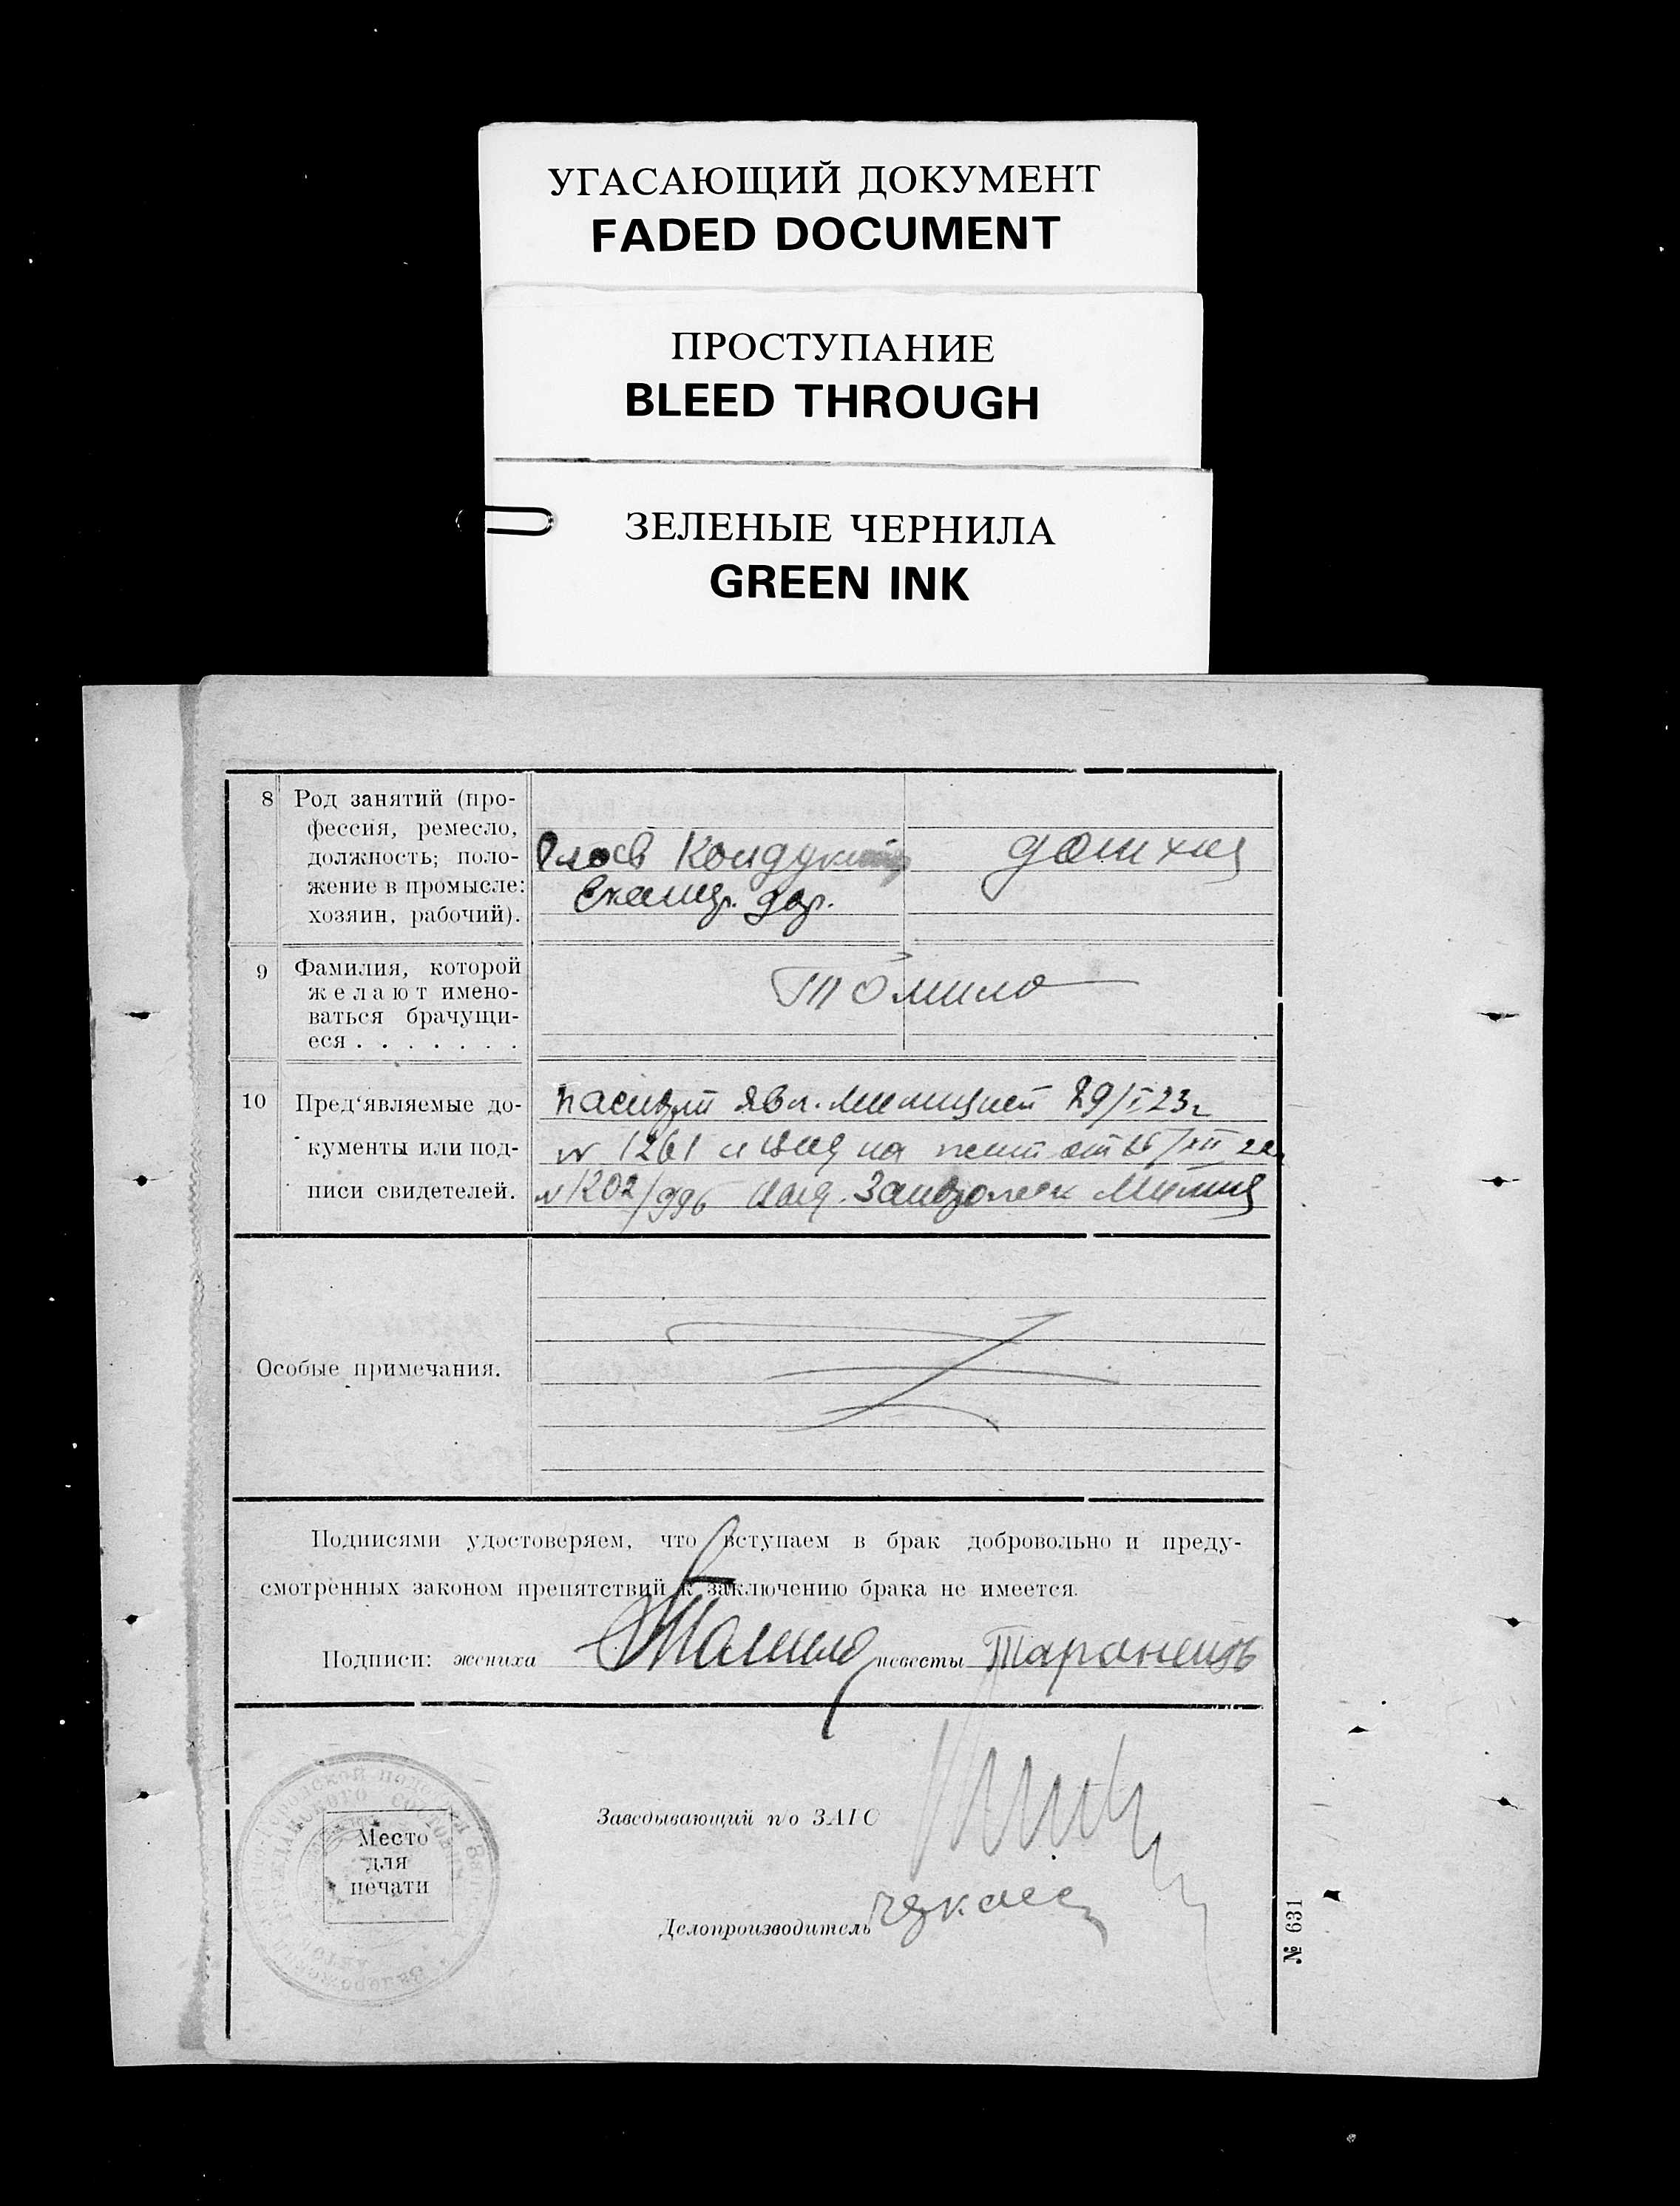 УГАСАЮЩИЙ ДОКУМЕНТ
FADED DOCUMENT
ПРОСТУПАНИЕ
BLEED THROUGH
ЗЕЛЕНЫЕ ЧЕРНИЛА
GREEN INK
8 Род занятий (про-
фессия, ремесло,
должность; поло-
жение в промысле:
хозяин, рабочий).
Кондукт
Екатер. дор.
дом хоз
9 Фамилия, которой
желают имено-
ваться брачущи-
еся . . . . . . .
Томило
10 Пред‘являемые до-
кументы или под-
писи свидетелей.
29/I 23г
№ 1261 на жит от /XII 22
№ 1202/996 Милиц
Особые примечания.
Подписями удостоверяем, что вступаем в брак добровольно и преду-
смотренных законом препятствий к заключению брака не имеется.
Подписи: жениха Томило невесты Таранець
Заведывающий п/о ЗАГС
Делопроизводитель
Место
для
печати
№ 631